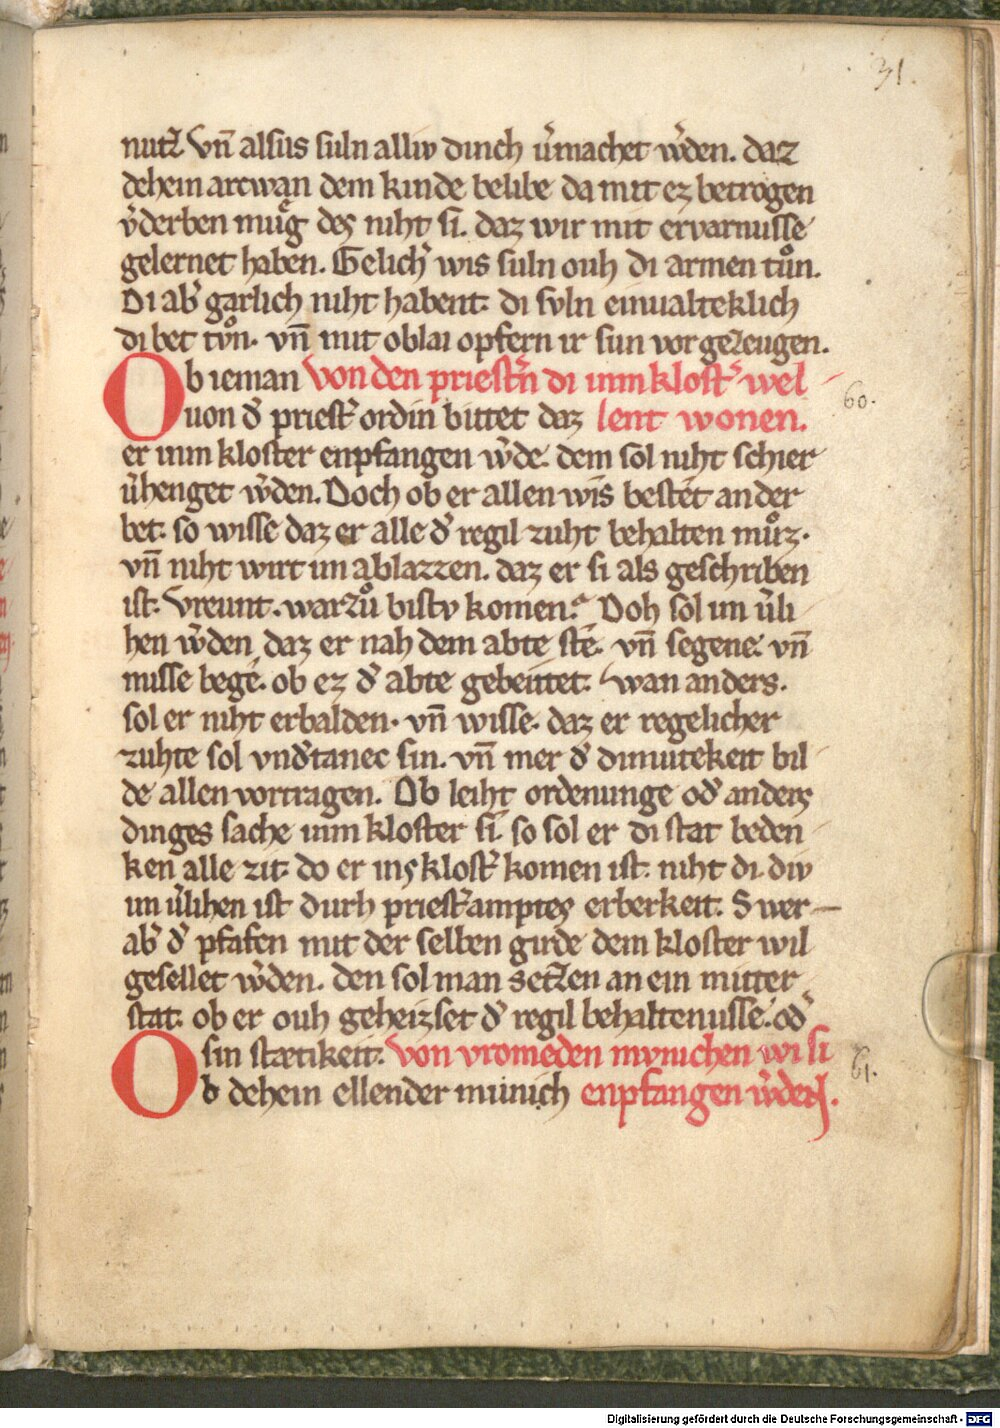 31.
nutz̃ vñ alsus suln alliv dinch v̾machet w̾den. daz
dehein arcwan dem kinde belibe da mit ez betrogen
v̾derben muͤg des niht si. daz wir mit ervarnusse
gelernet haben. Gelich̾ wis suln ouh di armen tuͦn.
Di ab̾ garlich niht habent. di svln einualteklich
di bet tvͦn. vñ mit oblai opfern ir sun vor gezeugen.
Ob ieman von den priest̾n di inm klost̾ wel
uon d̾ priest̾ ordin bittet daz lent wonen.
60.
er inm kloster enpfangen w̾de. dem sol niht schier
v̾henget w̾den. Doch ob er allen wis bestet an der
bet. so wisse daz er alle d̾ regil zuht behalten muͦz.
vñ niht wirt im ablazzen. daz er si als geschriben
ist. Vreunt. warzuͦ bistv komen? Doh sol im v̾li
hen w̾den daz er nah dem abte ste. vñ segene. vñ
misse bege. ob ez d̾ abte gebeutet. wan anders.
sol er niht erbalden. vñ wisse. daz er regelicher
zuhte sol vnd̾tanec sin. vñ mer d̾ dimuitekeit bil
de allen vortragen. Ob leiht ordenunge od̾ anders
dinges sache inm kloster si. so sol er di stat beden
ken alle zit. do er ins klost̾ komen ist. niht di. div
im v̾lihen ist durh priest̾amptes erberkeit. Swer
ab̾ d̾ pfafen mit der selben girde dem kloster wil
gesellet w̾den. den sol man setzen an ein mitter
stat. ob er ouh geheizset d̾ regil behaltenusse. od̾
sin stætikeit. von vromeden mvnichen wi si
Ob dehein ellender münich enpfangen w̾den.
61.
Digitalisierung gefördert durch die Deutsche Forschungsgemeinschaft - DFG